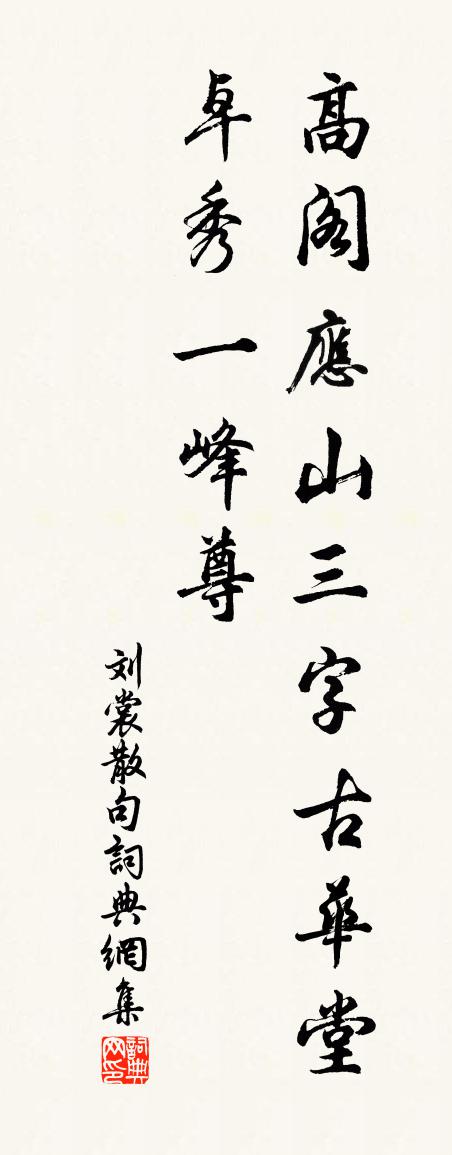 高閣應山三字古華堂
卓秀一峰尊
刘裳散句詞典網集
詞典网印